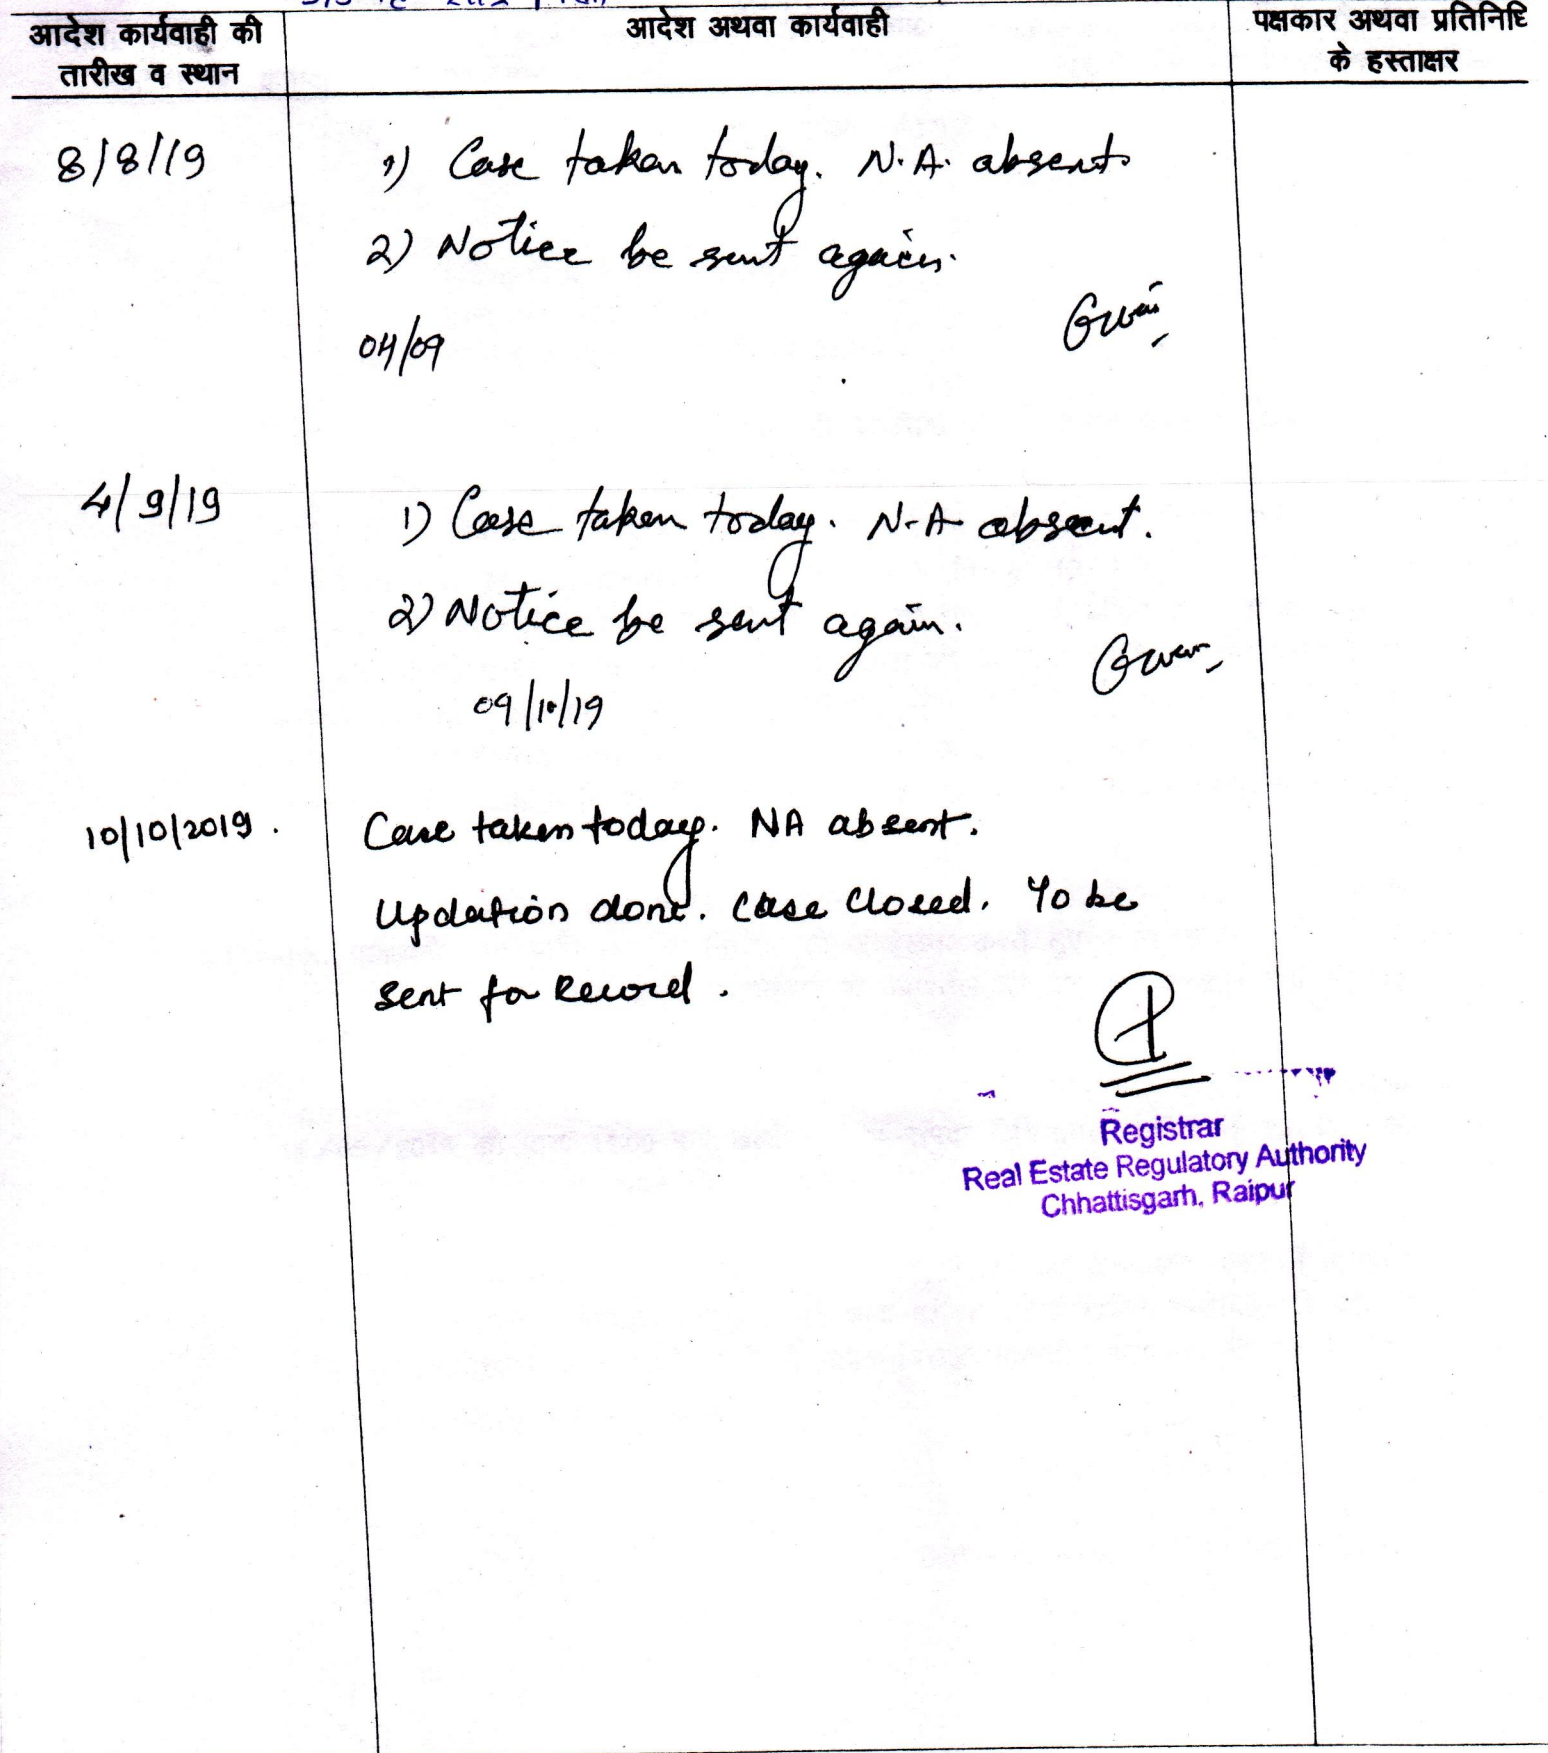 आदेश कार्यवाही की
तारीख व स्थान
आदेश अथवा कार्यवाही
पक्षकार अथवा प्रतिनिधि
के हस्ताक्षर
8/8/19
1) Case taken today. N.A. absent.
2) Notice be sent again.
04/09
4/9/19
1) Case taken today. N.A. absent.
2) Notice be sent again.
09/10/19
10/10/2019.
Case taken today. NA absent.
Updation done. Case Closed. To be
sent for Record.
Registrar
Real Estate Regulatory Authority
Chhattisgarh, Raipur